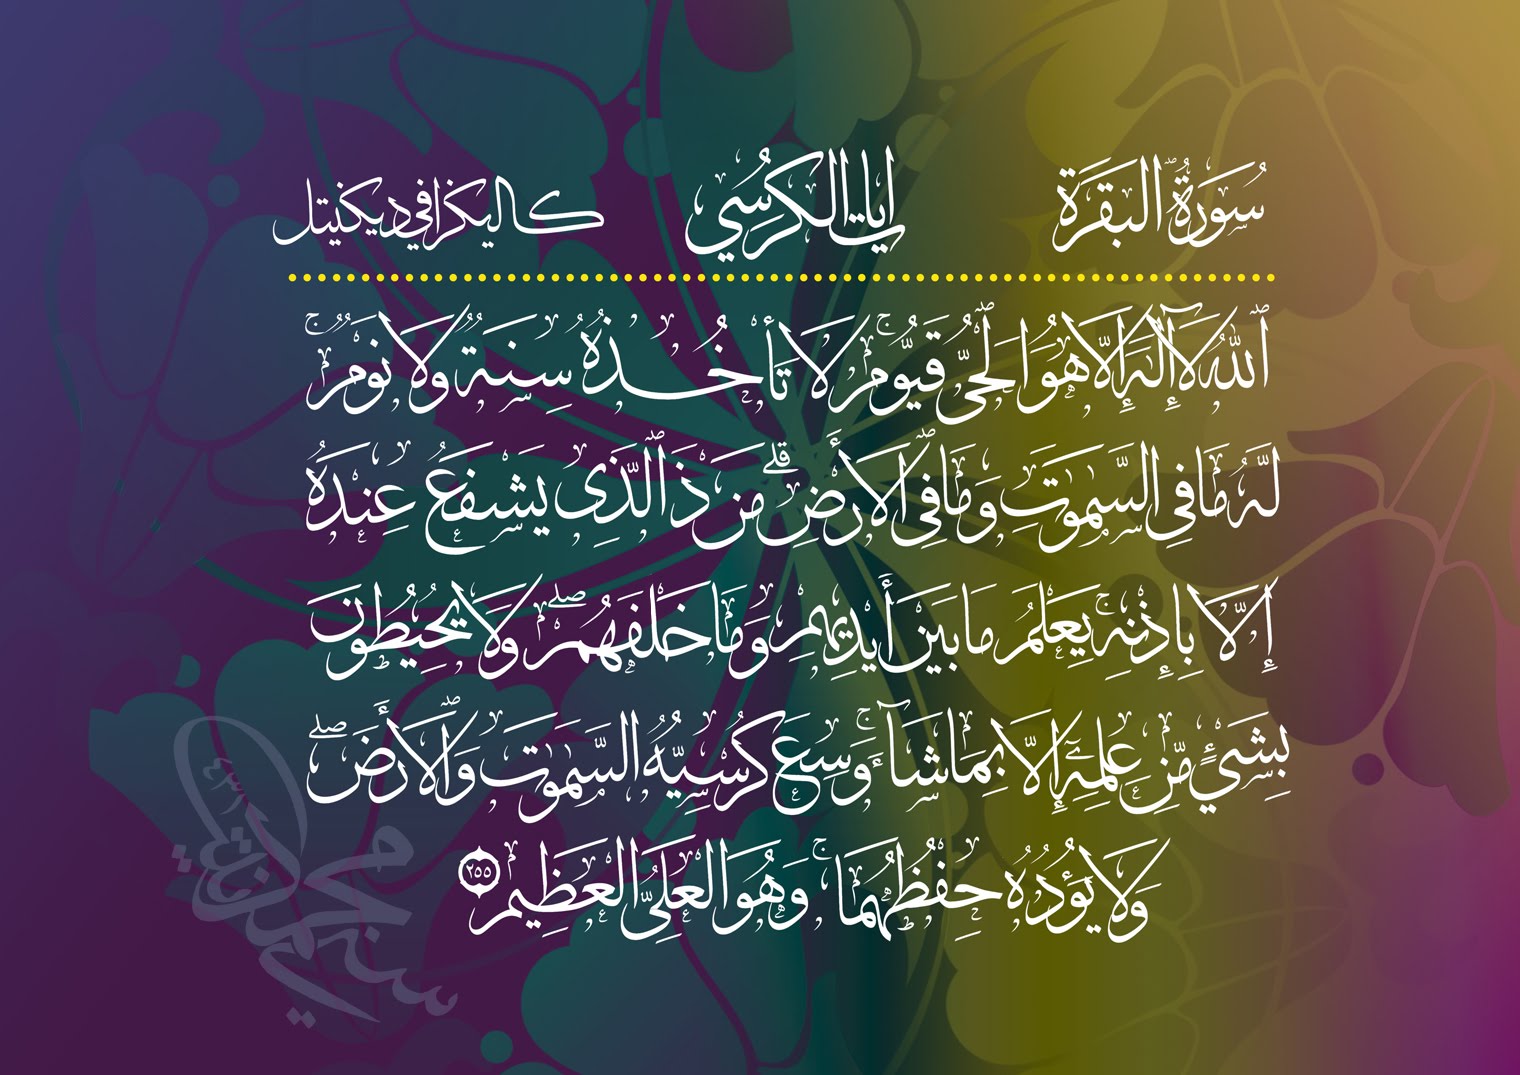 سُورَةُ البَقَرَة ايات الكُرْسِي كاليكرافي ديكيتل
ٱللّٰهُ لَآ إِلٰهَ إِلَّا هُوَ الحَيُّ قَيُّومُ لَا تَأْخُذُهُ سِنَةٌ وَلَا نَوْمٌ
لَهُ مَا فِي السَّمٰوٰتِ وَمَا فِي الْأَرْضِ مَن ذَا الَّذِى يَشْفَعُ عِندَهُ
إِلَّا بِإِذْنِهِ يَعْلَمُ مَا بَيْنَ أَيْدِيهِمْ وَمَا خَلْفَهُمْ وَلَا يُحِيطُونَ
بِشَيْءٍ مِّنْ عِلْمِهِ إِلَّا بِمَا شَآءَ وَسِعَ كُرْسِيُّهُ السَّمٰوٰتِ وَالْأَرْضَ
وَلَا يَؤُدُهُ حِفْظُهُمَا وَهُوَ العَلِيُّ العَظِيمُ ٢٥٥